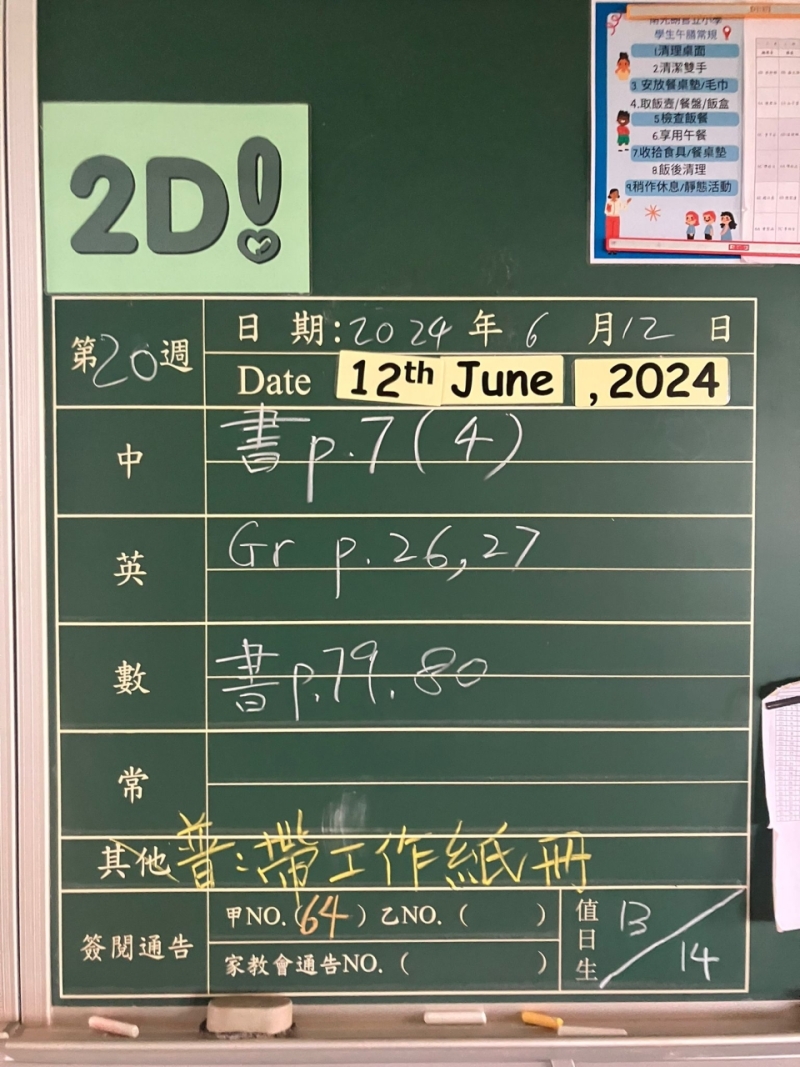 學生午膳常規
1.清理桌面
2.清潔雙手
3.安放餐桌墊/毛巾
4.取飯壺/餐盤/飯盒
5檢查飯餐
6.享用午餐
7.收拾食具/餐桌墊
8.飯後清理
9.稍作休息/靜態活動
2D!
第20週
日 期:2024年6月12日
Date 12th June, 2024
中
書p.7(4)
英
Gr p.26,27
數
書p.79.80
常
其他 普:帶工作紙冊
簽閱通告
甲NO.(64) 乙NO.( )
家教會通告NO.( )
值日生 13/14